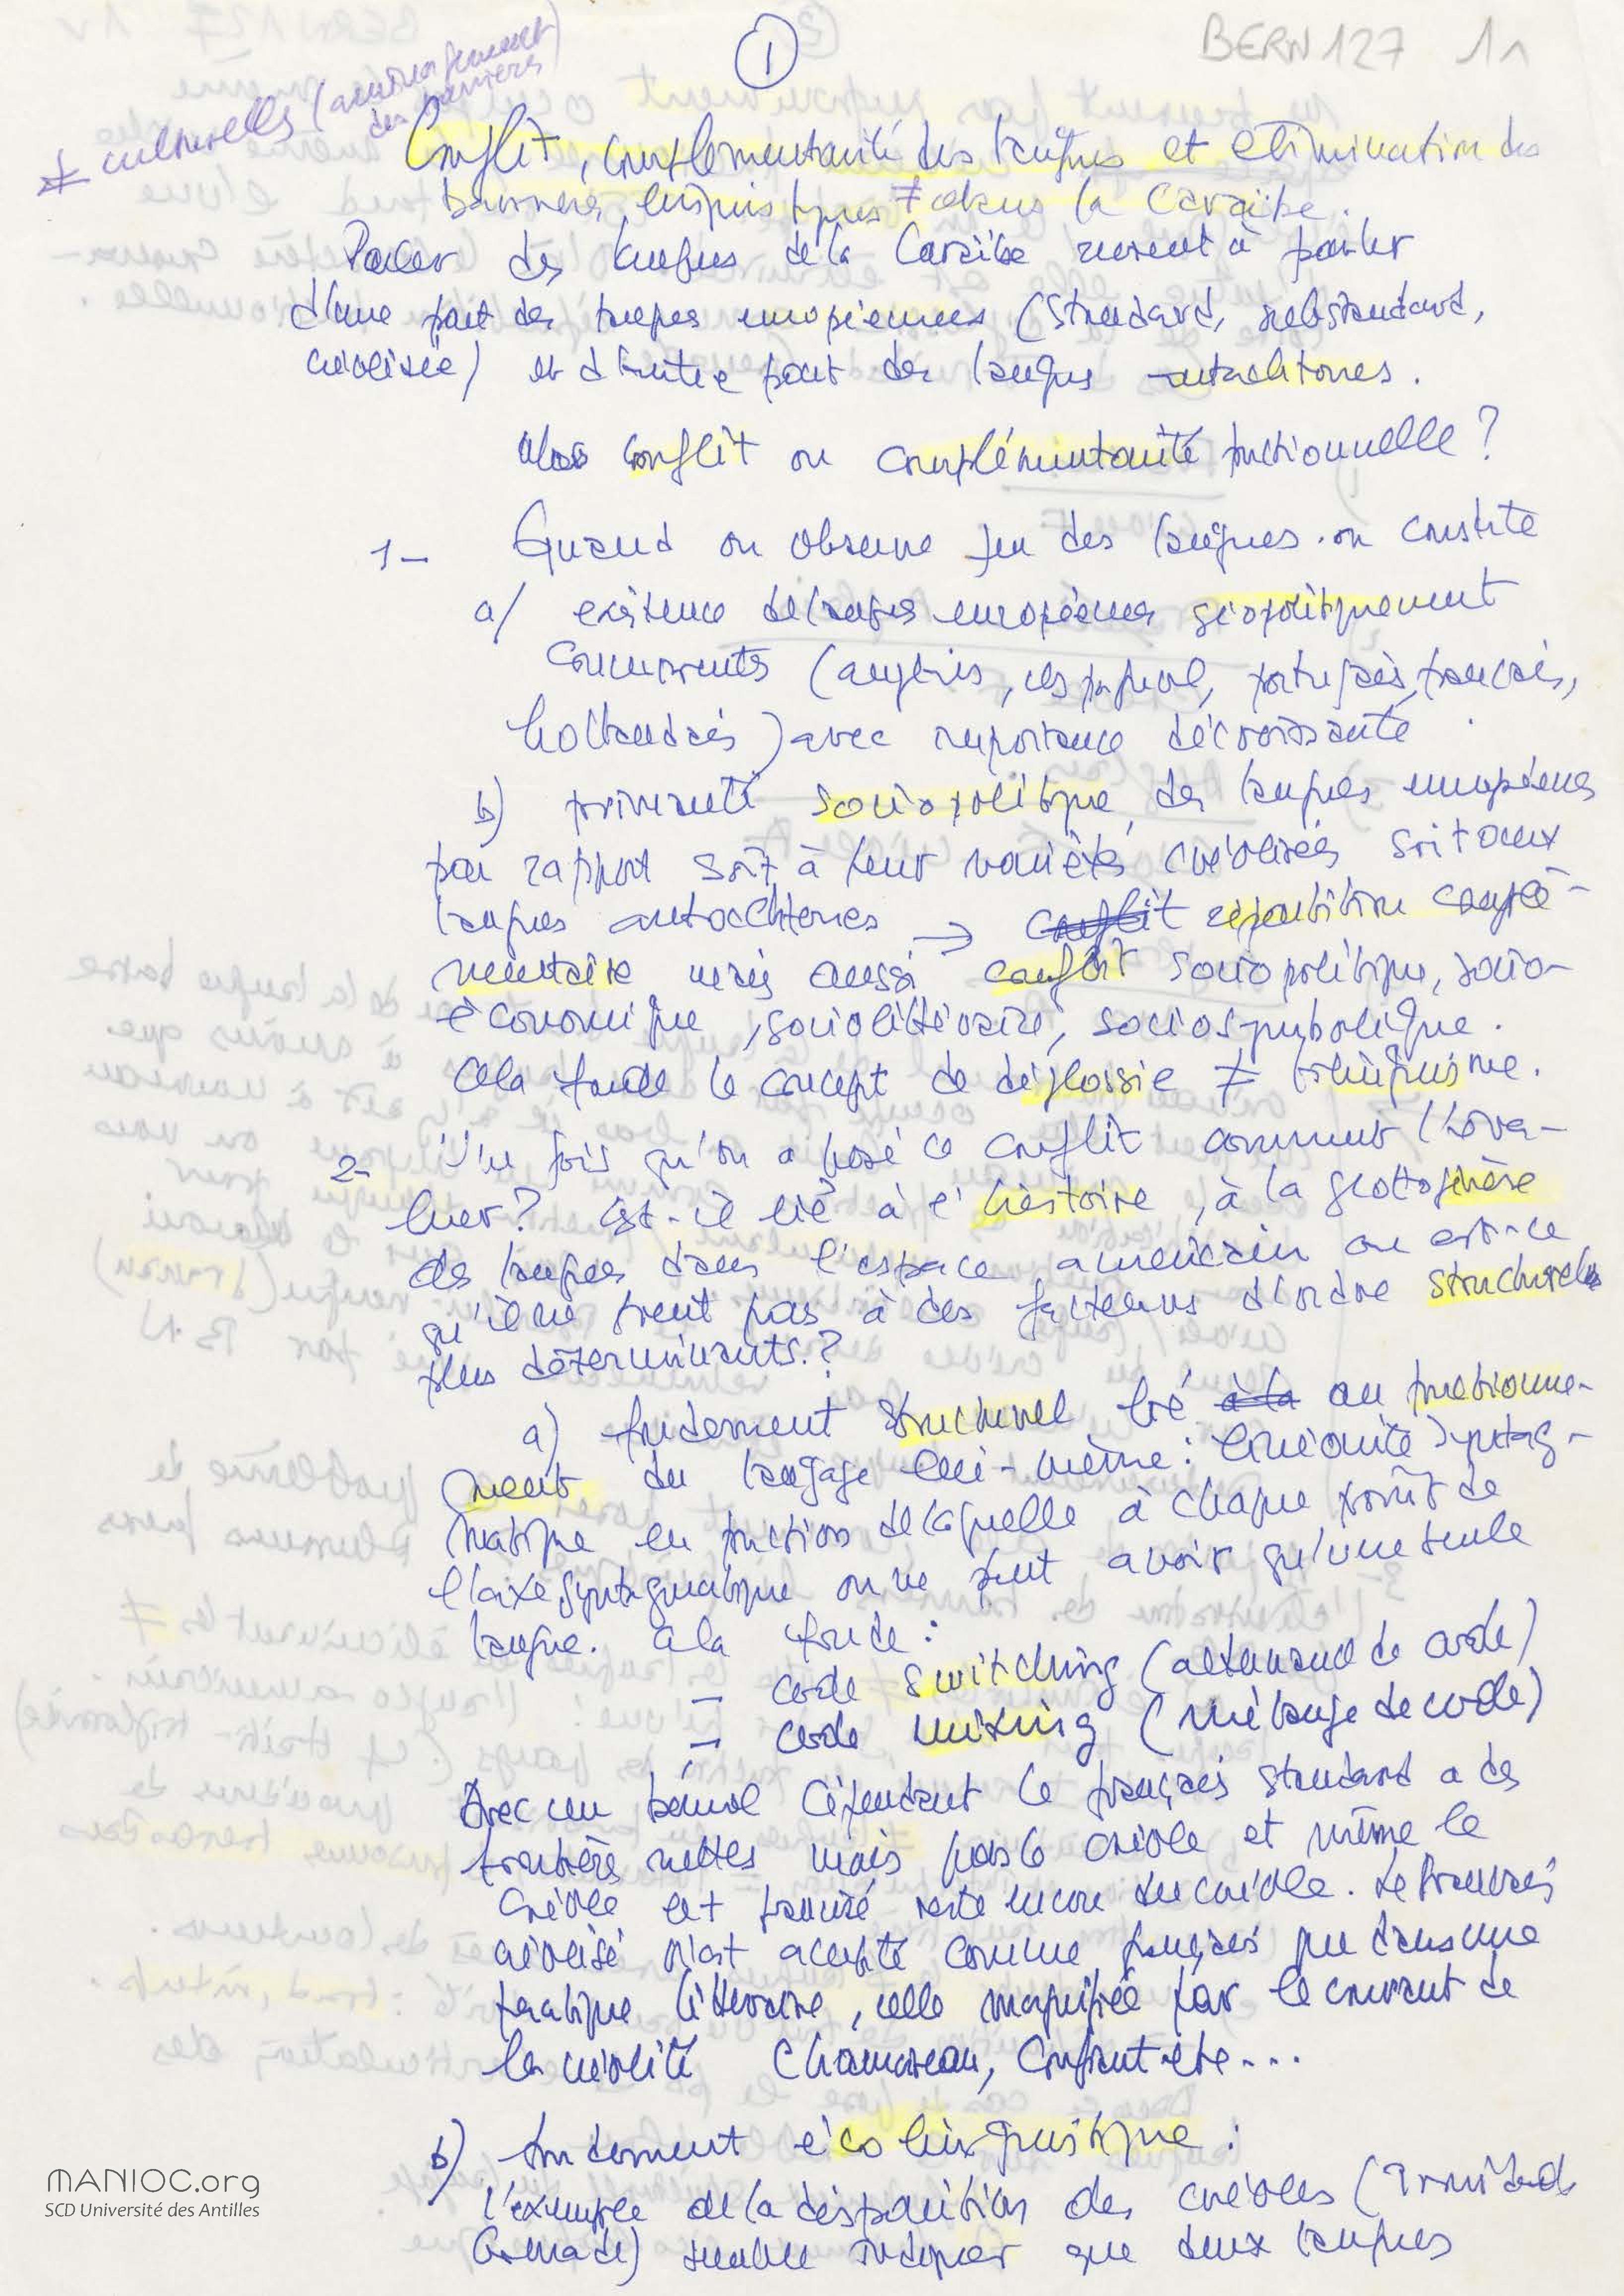 ①
BERN 127 1r
* culturelles (aussi
des barrières
Conflit, complémentarité des langues et élimination des
barrières linguistiques ≠ dans la Caraïbe.
Parler des langues de la Caraïbe revient à parler
d'une part des langues européennes (standard, substandard,
créolisée) et d'autre part des langues autochtones.
Alors conflit ou complémentarité fonctionnelle ?
1- Quand on observe jeu des langues on constate
a/ existence de langues européennes géopolitiquement
concurrentes (anglais, espagnol, portugais, français,
hollandais) avec importance décroissante.
b) primauté sociopolitique des langues européennes
par rapport soit à leur variétés créolisées soit aux
langues autochtones → conflit répartition complé-
mentaire mais aussi conflit sociopolitique, socio-
économique, sociolittéraire, sociosymbolique.
Cela fonde le concept de diglossie ≠ bilinguisme.
2- Une fois qu'on a posé ce conflit comment l'éva-
luer ? Est-il lié à l'histoire, à la glottophère
des langues dans l'espace américain ou est-ce
qu'il ne tient pas à des facteurs d'ordre structurels
plus déterminants ?
a) fondement structurel lié à la au fonctionne-
ment du langage lui-même : linéarité syntag-
matique en fonction de laquelle à chaque point de
l'axe syntagmatique on ne peut avoir qu'une seule
langue. Cela fonde :
- code switching (alternance de code)
- code mixing (mélange de code)
Avec un bémol cependant le français standard a des
frontières nettes mais pas le créole et même le
créole est francisé reste encore du créole. Le français
créolisé n'est accepté comme français que dans une
pratique littéraire, celle magnifiée par le courant de
la créolité Chamoiseau, Confiant etc...
b) fondement écolinguistique :
l'exemple de la disparition des créoles (Trinidad
Grenade) semble indiquer que deux langues
MANIOC.org
SCD Université des Antilles